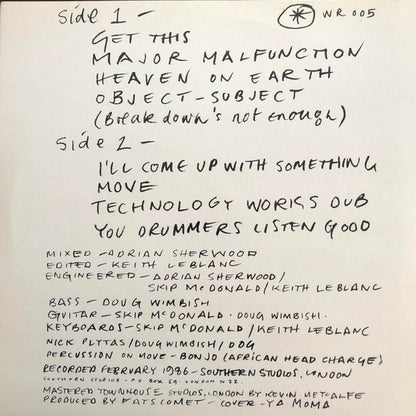 Side 1 - WR 005
GET THIS
MAJOR MALFUNCTION
HEAVEN ON EARTH
OBJECT-SUBJECT
(Breakdown's not enough)
Side 2 -
I'LL COME UP WITH SOMETHING
MOVE
TECHNOLOGY WORKS DUB
YOU DRUMMERS LISTEN GOOD
MIXED - ADRIAN SHERWOOD
EDITED - KEITH LEBLANC
ENGINEERED - ADRIAN SHERWOOD/
SKIP McDONALD/KEITH LEBLANC
BASS - DOUG WIMBISH
GUITAR - SKIP McDONALD. DOUG WIMBISH.
KEYBOARDS - SKIP McDONALD/KEITH LEBLANC
NICK PLYTAS/DOUG WIMBISH/DDG
PERCUSSION ON MOVE - BONJO (AFRICAN HEAD CHARGE)
RECORDED FEBRUARY 1986 - SOUTHERN STUDIOS. LONDON
SOUTHERN STUDIOS - PO BOX 59. LONDON N22.
MASTERED TOWNHOUSE STUDIOS, LONDON BY KEVIN METCALFE
PRODUCED BY FATS COMET - COVER - YA MOMA